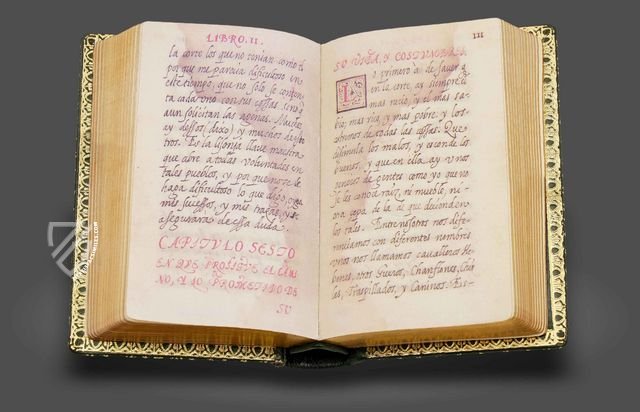 LIBRO. II.
la corte los que tenian como ti
por que me parecia dificultoso en
este tiempo, que no solo se conten
ta cada uno con sus cossas, sino q
aun solicitan las agenas. Muchos
ay dessos (dixo) y muchos deste
tros. Es la lisonja llave maestra
que abre a todas voluntades en
tales pueblos, y por que no se te
haga dificultoso lo que digo, oye
mis sucessos, y mis trazas, y se
asegurara de essa duda.
CAPITULO SESTO
EN QUE PROSIGUE EL CAMI
NO, Y LO PROMETIDO DE
SU
III
SU VIDA, Y COSTUMBRES
Lo primero a de saver q
en la corte, ay siempre el
mas necio, y el mas sa
bio; mas rico, y el mas pobre; y los
estremos de todas las cossas. Que
disimula los malos, y esconde los
buenos, y que en ella ay unos
generos de gentes como yo que no
se les conoce raiz, ni mueble, ni
otra cepa de la de que decienden
los tales. Entre nosotros nos dife
renciamos con diferentes nombres
unos nos llamamos cavalleros He
benes, otros Gueros, Chanflones, Chir
las, Traspillados, y Caninos. Es-